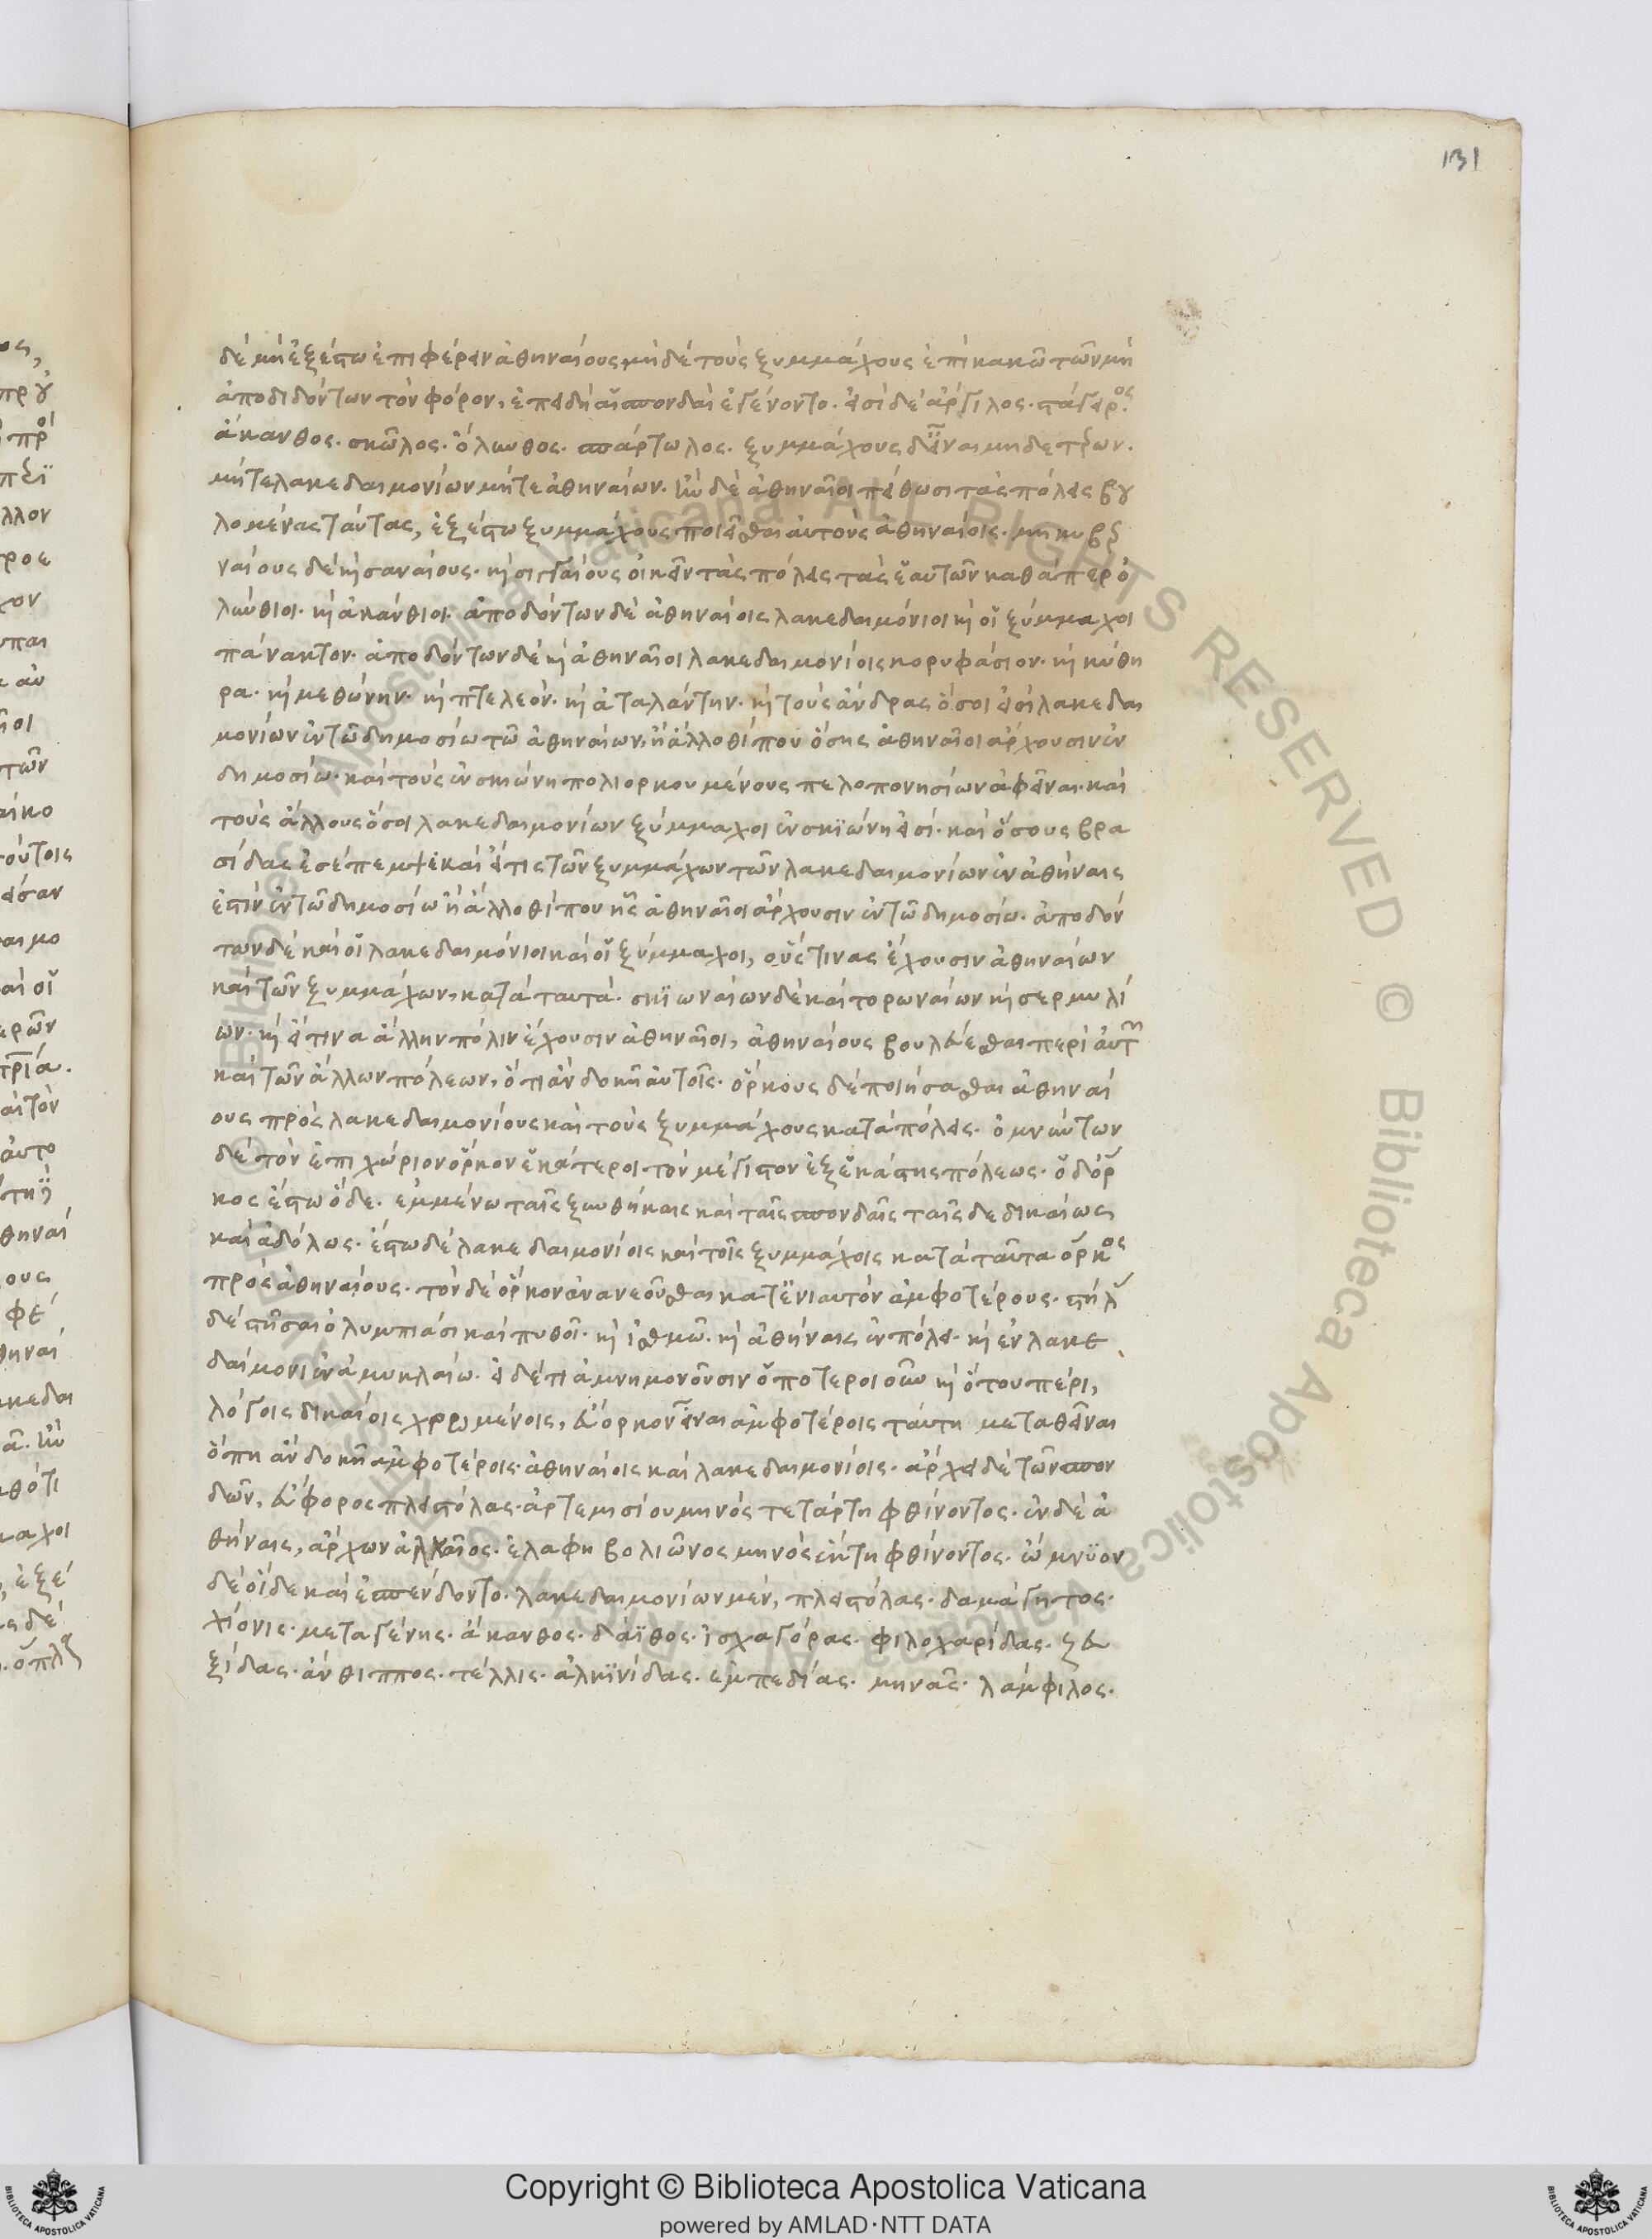 131
δὲ μὴ ἐξέστω ἐπιφέρειν ἀθηναίους μηδὲ τοὺς ξυμμάχους ἐπὶ κακῶ τῶν μὴ
ἀποδιδόντων τὸν φόρον, ἐπειδὴ αἱ σπονδαὶ ἐγένοντο. εἰσὶ δὲ ἄργιλος. στάγειρος.
ἄκανθος. σκῶλος. ὄλυνθος. σπάρτωλος. ξυμμάχους δ' εἶναι μηδετέρων.
μήτε λακεδαιμονίων μήτε ἀθηναίων. ἢν δὲ ἀθηναῖοι πείθωσι τὰς πόλεις βου
λομένας ταύτας, ἐξέστω ξυμμάχους ποιεῖσθαι αὐτοὺς ἀθηναίοις. μηκυβερ
ναίους δὲ καὶ σαναίους. καὶ σιγγαίους οἰκεῖν τὰς πόλεις τὰς ἑαυτῶν καθάπερ ὀ
λύνθιοι. καὶ ἀκάνθιοι. ἀποδόντων δὲ ἀθηναίοις λακεδαιμόνιοι καὶ οἱ ξύμμαχοι
πάνακτον. ἀποδόντων δὲ καὶ ἀθηναῖοι λακεδαιμονίοις κορυφάσιον. καὶ κύθη
ρα. καὶ μεθώνην. καὶ πτελεόν. καὶ ἀταλάντην. καὶ τοὺς ἄνδρας ὅσοι εἰσὶ λακεδαι
μονίων ἐν τῶ δημοσίω τῶ ἀθηναίων, ἢ ἄλλοθί που ὅσης ἀθηναῖοι ἄρχουσιν ἐν
δημοσίω. καὶ τοὺς ἐν σκιώνη πολιορκουμένους πελοπονησίων ἀφεῖναι. καὶ
τοὺς ἄλλους ὅσοι λακεδαιμονίων ξύμμαχοι ἐν σκϊώνη εἰσί. καὶ ὅσους βρα
σίδας ἐσέπεμψε καὶ εἴ τις τῶν ξυμμάχων τῶν λακεδαιμονίων ἐν ἀθήναις
ἐστὶν ἐν τῶ δημοσίω ἢ ἄλλοθί που ἧς ἀθηναῖοι ἄρχουσιν ἐν τῶ δημοσίω. ἀποδόν
των δὲ καὶ οἱ λακεδαιμόνιοι καὶ οἱ ξύμμαχοι, οὕστινας ἔχουσιν ἀθηναίων
καὶ τῶν ξυμμάχων, κατὰ ταυτά. σκϊωναίων δὲ καὶ τορωναίων καὶ σερμυλί
ων. καὶ εἴ τινα ἄλλην πόλιν ἔχουσιν ἀθηναῖοι, ἀθηναίους βουλεύεσθαι περὶ αὐτῶν
καὶ τῶν ἄλλων πόλεων, ὅτι ἂν δοκῆ αὐτοῖς. ὅρκους δὲ ποιήσασθαι ἀθηναί
ους πρὸς λακεδαιμονίους καὶ τοὺς ξυμμάχους κατὰ πόλεις. ὀμνύντων
δὲ τὸν ἐπιχώριον ὅρκον ἑκάτεροι τὸν μέγιστον ἐξ ἑκάστης πόλεως. ὁ δ' ὅρ
κος ἔστω ὅδε. ἐμμένω ταῖς ξυνθήκαις καὶ ταῖς σπονδαῖς ταῖς δε δικαίως
καὶ ἀδόλως. ἔστω δὲ λακεδαιμονίοις καὶ τοῖς ξυμμάχοις κατὰ ταῦτα ὅρκος
πρὸς ἀθηναίους. τὸν δὲ ὅρκον ἀνανεοῦσθαι κατ' ἐνιαυτὸν ἀμφοτέρους. στήλας
δὲ στῆσαι ὀλυμπιάσι καὶ πυθοῖ. καὶ ἰσθμῶ. καὶ ἀθήναις ἐν πόλει. καὶ ἐν λακε
δαίμονι ἐν ἀμυκλαίω. εἰ δέ τι ἀμνημονοῦσιν ὁποτεροιοῦν καὶ ὅτου πέρι,
λόγοις δικαίοις χρωμένοις, εὔορκον εἶναι ἀμφοτέροις ταύτη μεταθεῖναι
ὅπη ἂν δοκῆ ἀμφοτέροις ἀθηναίοις καὶ λακεδαιμονίοις. ἄρχει δὲ τῶν σπον
δῶν, ἔφορος πλειστόλας. ἀρτεμισίου μηνὸς τετάρτη φθίνοντος. ἐν δὲ ἀ
θήναις, ἄρχων ἀλκαῖος. ἐλαφηβολιῶνος μηνὸς ἕκτη φθίνοντος. ὤμνϋον
δὲ οἵδε καὶ ἐσπένδοντο. λακεδαιμονίων μὲν, πλειστόλας. δαμάγητος.
χίονις. μεταγένης. ἄκανθος. δάϊθος. ἰσχαγόρας. φιλοχαρίδας. ζευ
ξίδας. ἄνθιππος. τέλλις. ἀλκϊνίδας. ἐμπεδίας. μηνᾶς. λάμφιλος.
Copyright © Biblioteca Apostolica Vaticana
powered by AMLAD·NTT DATA